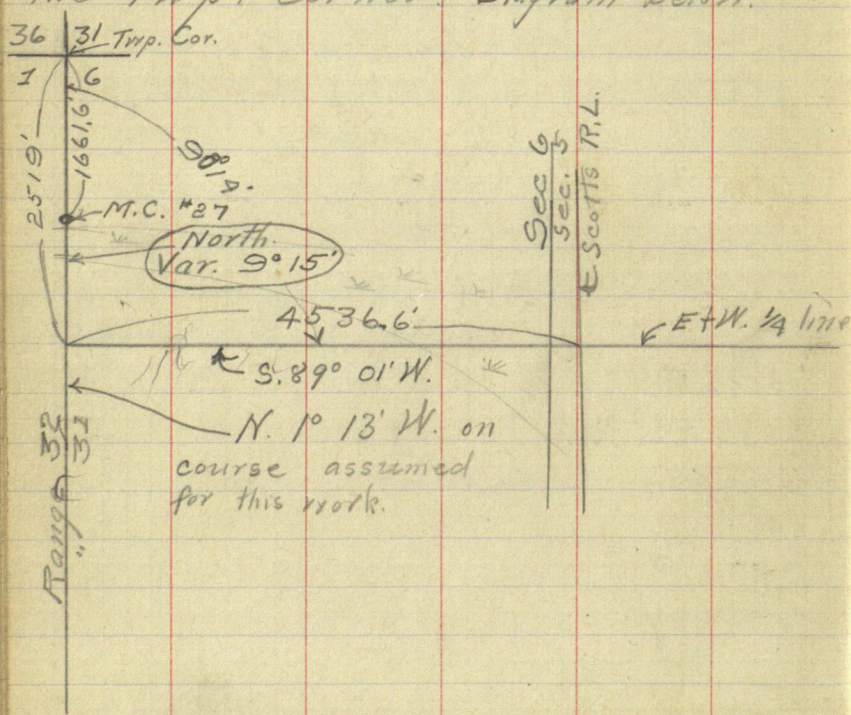 the Twp. Corner. Diagram below.
36 31 Twp. Cor.
1 6
2519'
1661.6'
90° 14'
M.C. #27
North.
Var. 9° 15'
Sec 6
Sec. 5
℄ Scotts R.L.
4536.6'
E+W. 1/4 line
S. 89° 01' W.
N. 1° 13' W. on
course assumed
for this work.
Range 32
" 31